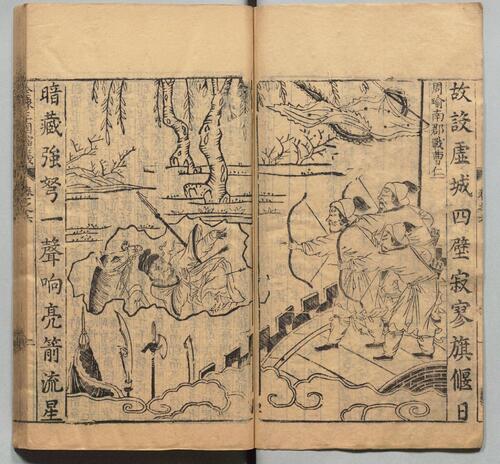 故設虛城四壁寂寥旗偃日
周喻南郡戰曹仁
暗藏強弩一聲响亮箭流星